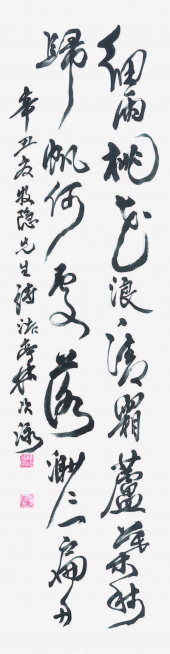 细雨桃花浪清霜芦叶秋
归帆何处落渺渺一扁舟
辛丑友牧隐先生诗